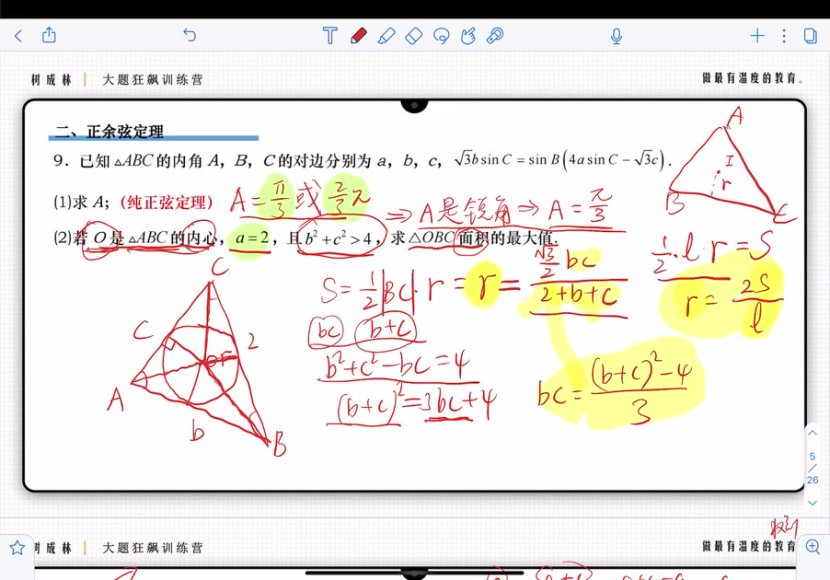 树成林 | 大题狂飙训练营
做最有温度的教育。
二、正余弦定理
9. 已知△ABC的内角 A，B，C的对边分别为 a，b，c，√3b sin C = sin B(4a sin C − √3c).
(1)求 A；(纯正弦定理) A=π/3或2/3π ⇒ A是锐角 ⇒ A=π/3
(2)若 O是△ABC的内心，a=2，且b²+c²>4，求△OBC面积的最大值.
A
I
r
B
C
1/2·l·r=S
r=2S/l
S=1/2|BC|·r=r=(√3/2 bc)/(2+b+c)
bc b+c
b²+c²−bc=4
(b+c)²=3bc+4
bc=((b+c)²−4)/3
C
C
2
O r
A
b
B
5
/
26
树成林 | 大题狂飙训练营
做最有温度的教育